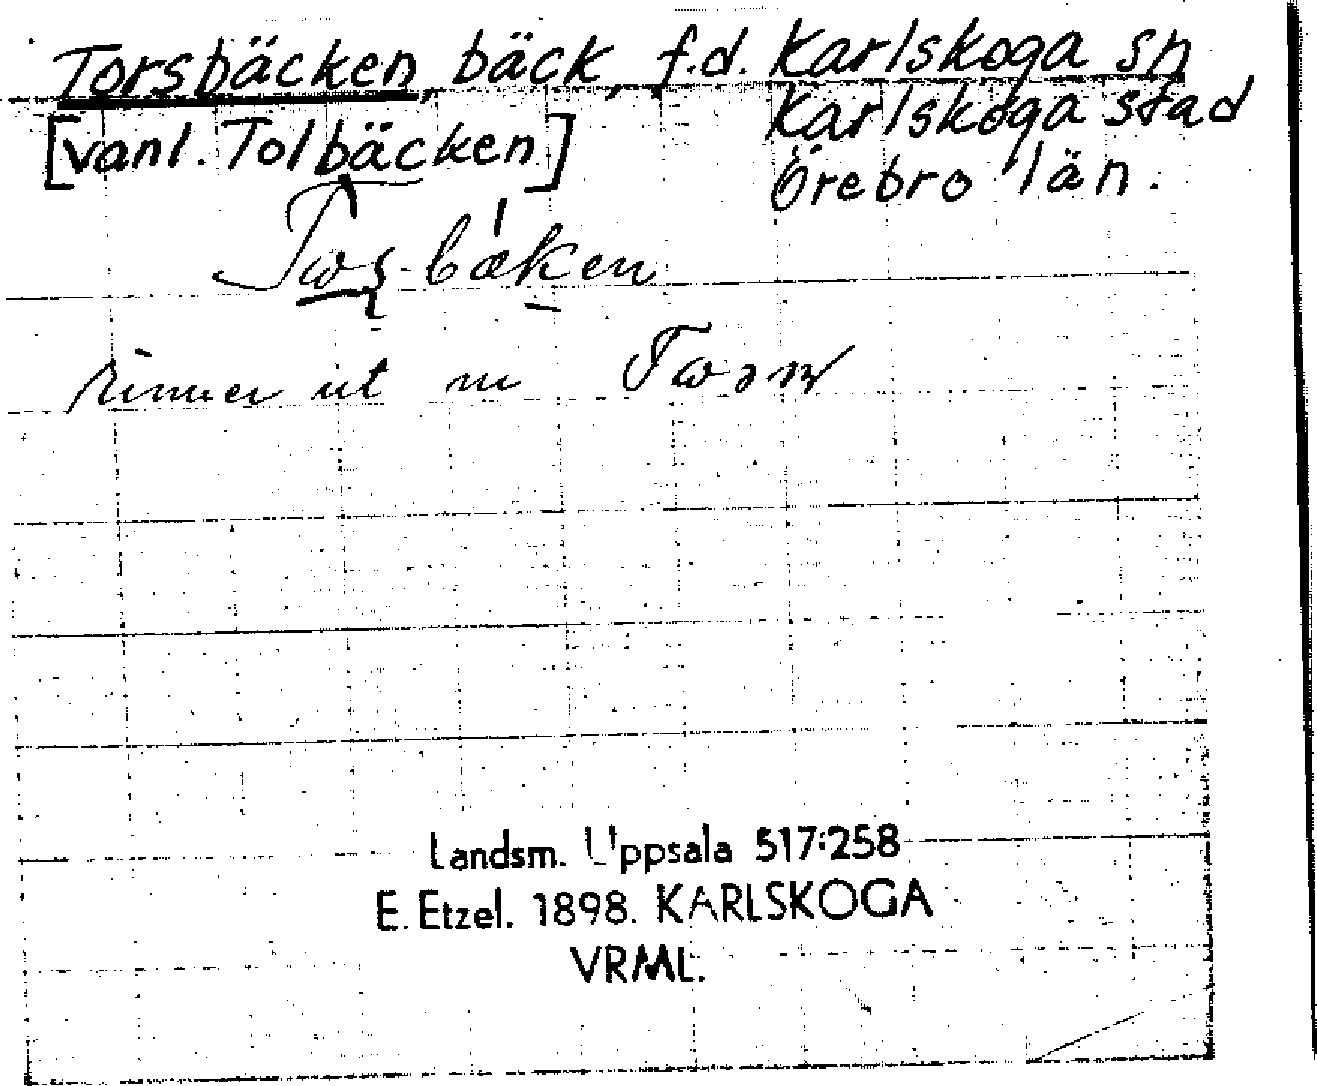 Torsbäcken, bäck, f.d. Karlskoga sn
Karlskoga stad
[vanl. Tolbäcken]
Örebro län.
rinner ut
Landsm. Uppsala 517:258
E. Etzel. 1898. KARLSKOGA
VRML.